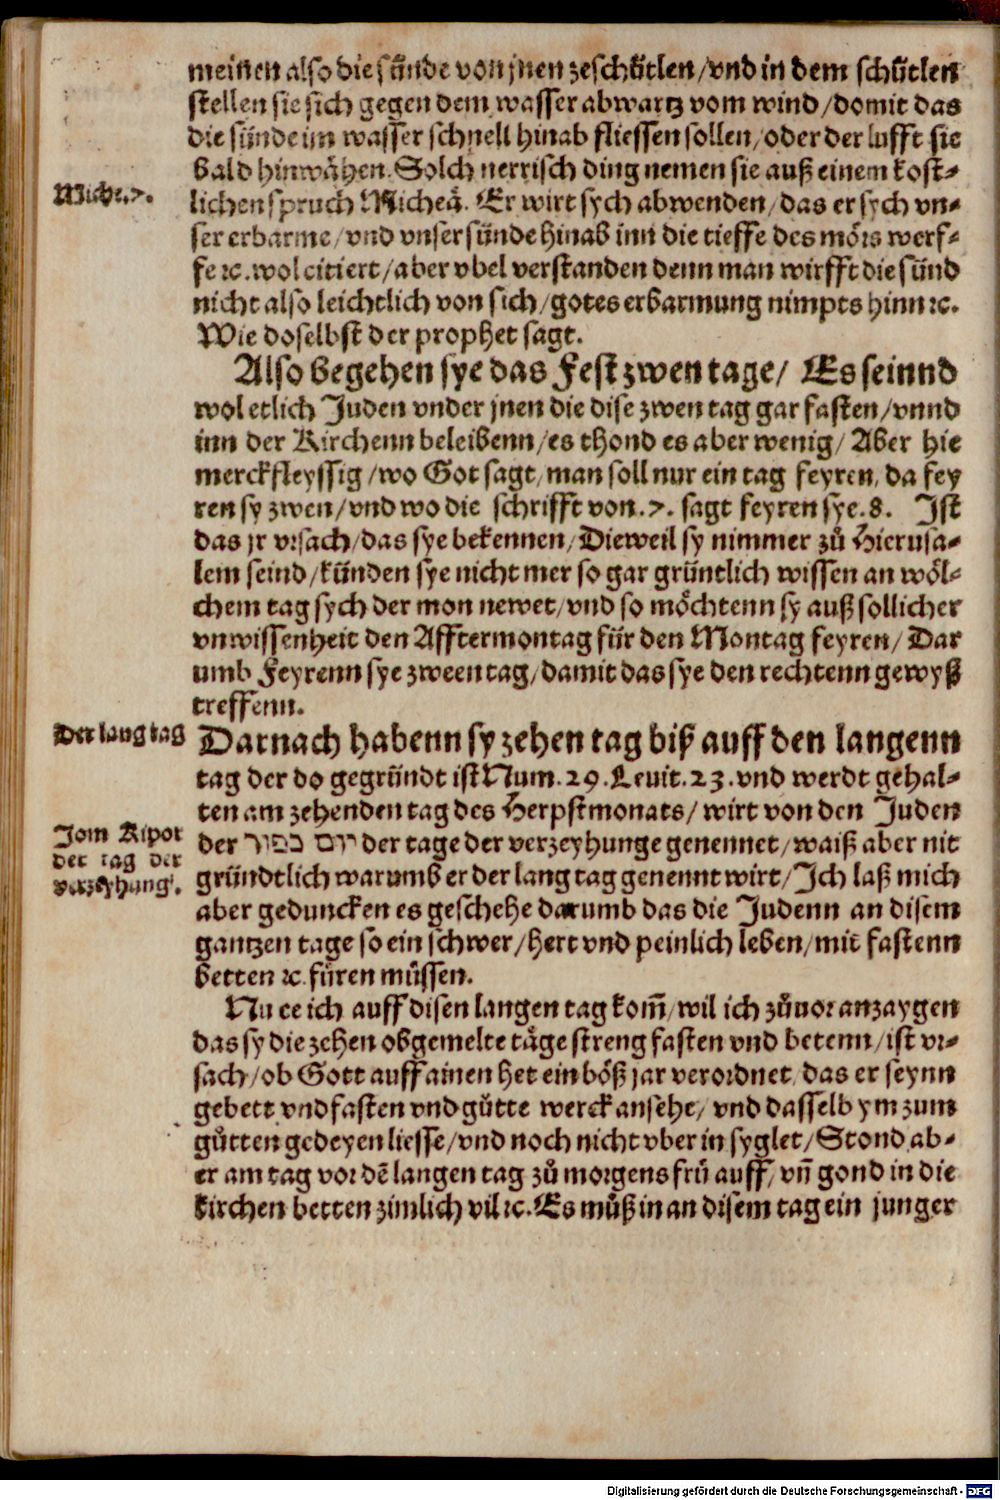 meinen also die sünde von jnen zeschütlen/vnd in dem schütlen
stellen sie sich gegen dem wasser abwartz vom wind/domit das
die sünde im wasser schnell hinab fliessen sollen/oder der lufft sie
bald hinwähen. Solch nerrisch ding nemen sie auß einem kost-
Miche.7.
lichen spruch Micheä. Er wirt sych abwenden/das er sych vn-
ser erbarme/vnd vnser sünde hinab inn die tieffe des mörs werf-
fe ꝛc. wol citiert/aber vbel verstanden denn man wirfft die sünd
nicht also leichtlich von sich/gotes erbarmung nimpts hinn ꝛc.
Wie doselbst der prophet sagt.
Also begehen sye das Fest zwen tage/ Es seinnd
wol etlich Juden vnder jnen die dise zwen tag gar fasten/vnnd
inn der Kirchenn beleibenn/es thond es aber wenig/ Aber hie
merckfleyssig/wo Got sagt/man soll nur ein tag feyren/da fey
ren sy zwen/vnd wo die schrifft von .7. sagt feyren sye .8. Ist
das jr vrsach/das sye bekennen/Dieweil sy nimmer zů Hierusa-
lem seind/künden sye nicht mer so gar gründtlich wissen an wöl-
chem tag sych der mon newet/vnd so möchtenn sy auß sollicher
vnwissenheit den Afftermontag für den Montag feyren/Dar
umb Feyrenn sye zween tag/damit das sye den rechtenn gewyß
treffenn.
Der lang tag
Darnach habenn sy zehen tag biß auff den langenn
tag der do gegründt ist Num. 29. Leuit. 23. vnd werdt gehal-
ten am zehenden tag des Herpstmonats/ wirt von den Juden
Jom Kipor
der tag der
verzeyhung.
der יום כפור der tage der verzeyhunge genennet/waiß aber nit
gründtlich warumb er der lang tag genennt wirt/Ich laß mich
aber geduncken es geschehe darumb das die Judenn an disem
gantzen tage so ein schwer/hert vnd peinlich leben/mit fastenn
betten ꝛc. füren müssen.
Nu ee ich auff disen langen tag kom̄/wil ich zůuor anzaygen
das sy die zehen obgemelte täge streng fasten vnd betenn/ist vr-
sach/ob Gott auff ainen het ein böß jar verordnet/das er seynn
gebett vnd fasten vnd gůtte werck ansehe/ vnd dasselb ym zum
gůtten gedeyen liesse/vnd noch nicht vber in syglet/Stond ab-
er am tag vor dē langen tag zů morgens frů auff/vn̄ gond in die
kirchen betten zimlich vil ꝛc. Es můß in an disem tag ein junger
Digitalisierung gefördert durch die Deutsche Forschungsgemeinschaft - DFG